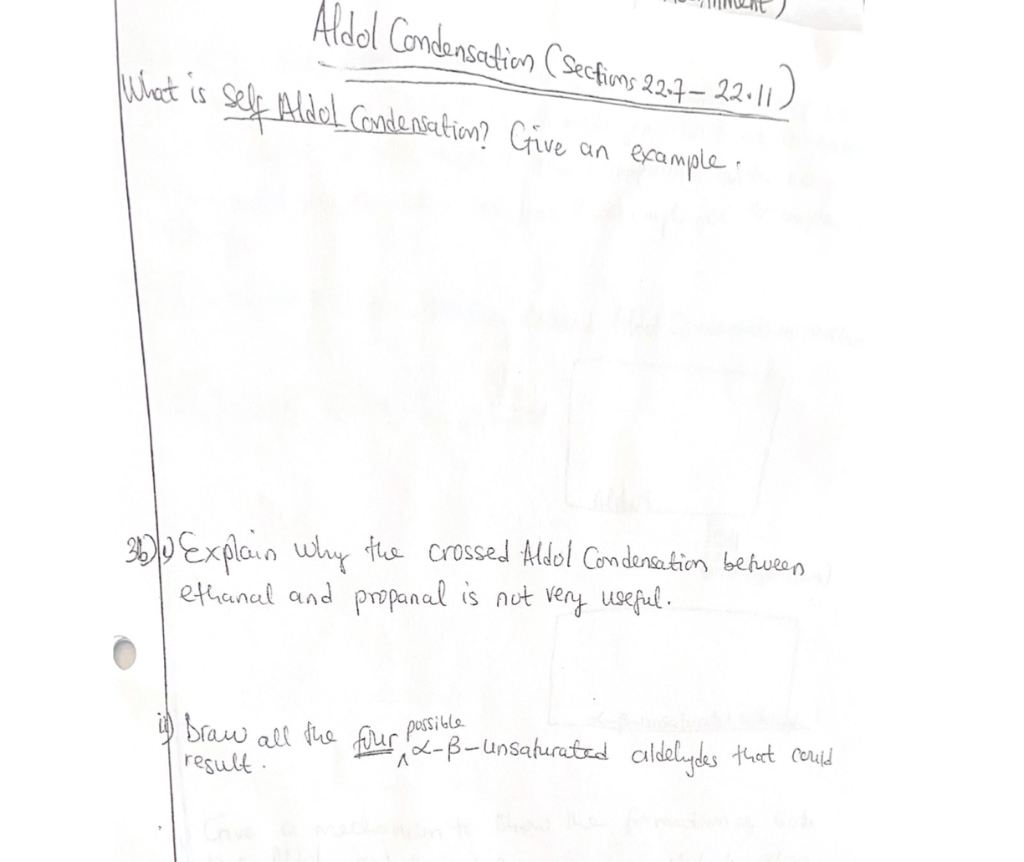 Aldol Condensation (Sections 22.7 – 22.11)
What is Self Aldol Condensation? Give an example.
3b) i) Explain why the crossed Aldol Condensation between
ethanal and propanal is not very useful.
ii) Draw all the four possible α-β-unsaturated aldehydes that could
result.